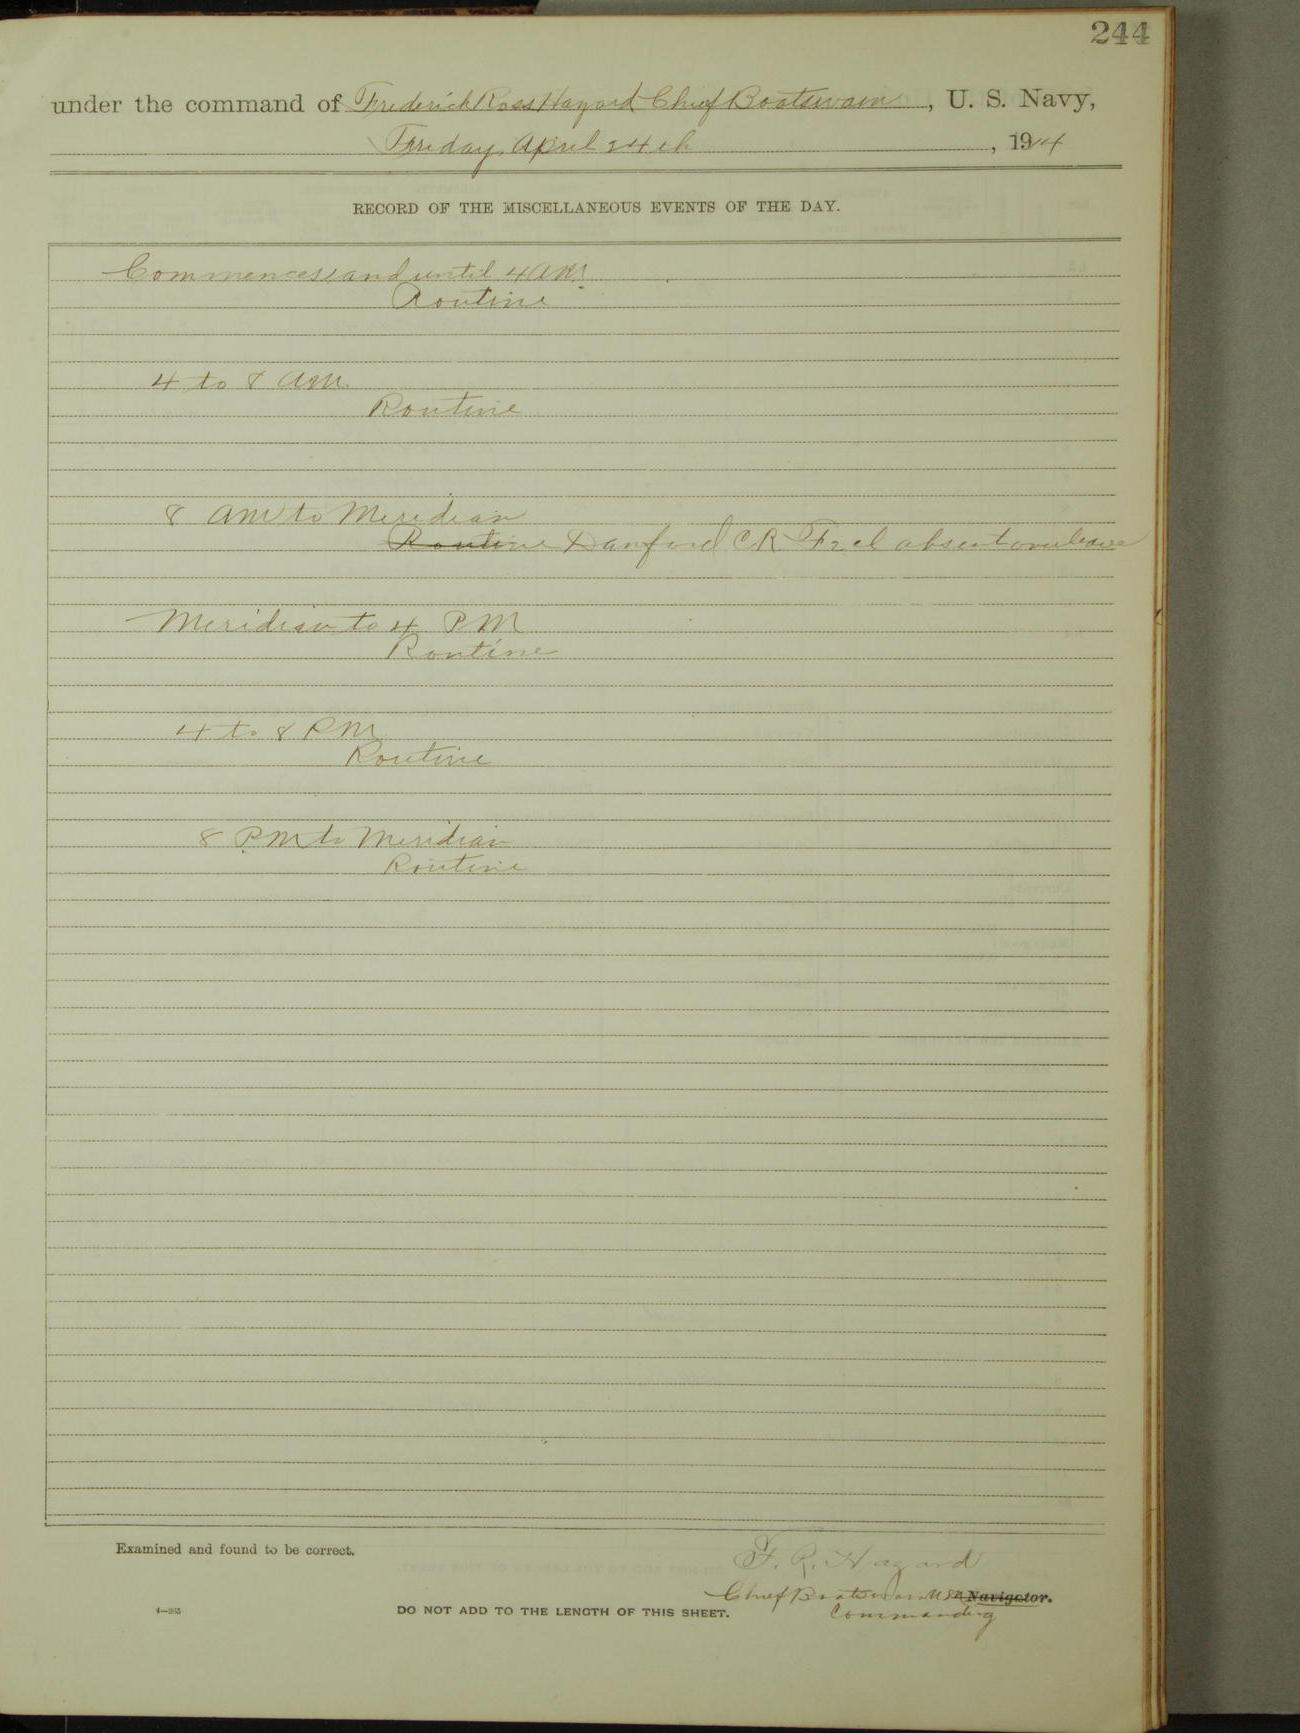 244
under the command of Frederick Ross Hazard Chief Boatswain, U. S. Navy,
Friday, April 24th, 1914
RECORD OF THE MISCELLANEOUS EVENTS OF THE DAY.
Commences and until 4 AM.
Routine
4 to 8 AM.
Routine
8 AM to Meridian
Routine Danford CR F2cl absent over leave
Meridian to 4 PM
Routine
4 to 8 PM
Routine
8 PM to Meridian
Routine
Examined and found to be correct.
F. R. Hazard
Chief Boatswain USN Navigator.
4—265 DO NOT ADD TO THE LENGTH OF THIS SHEET. Commanding